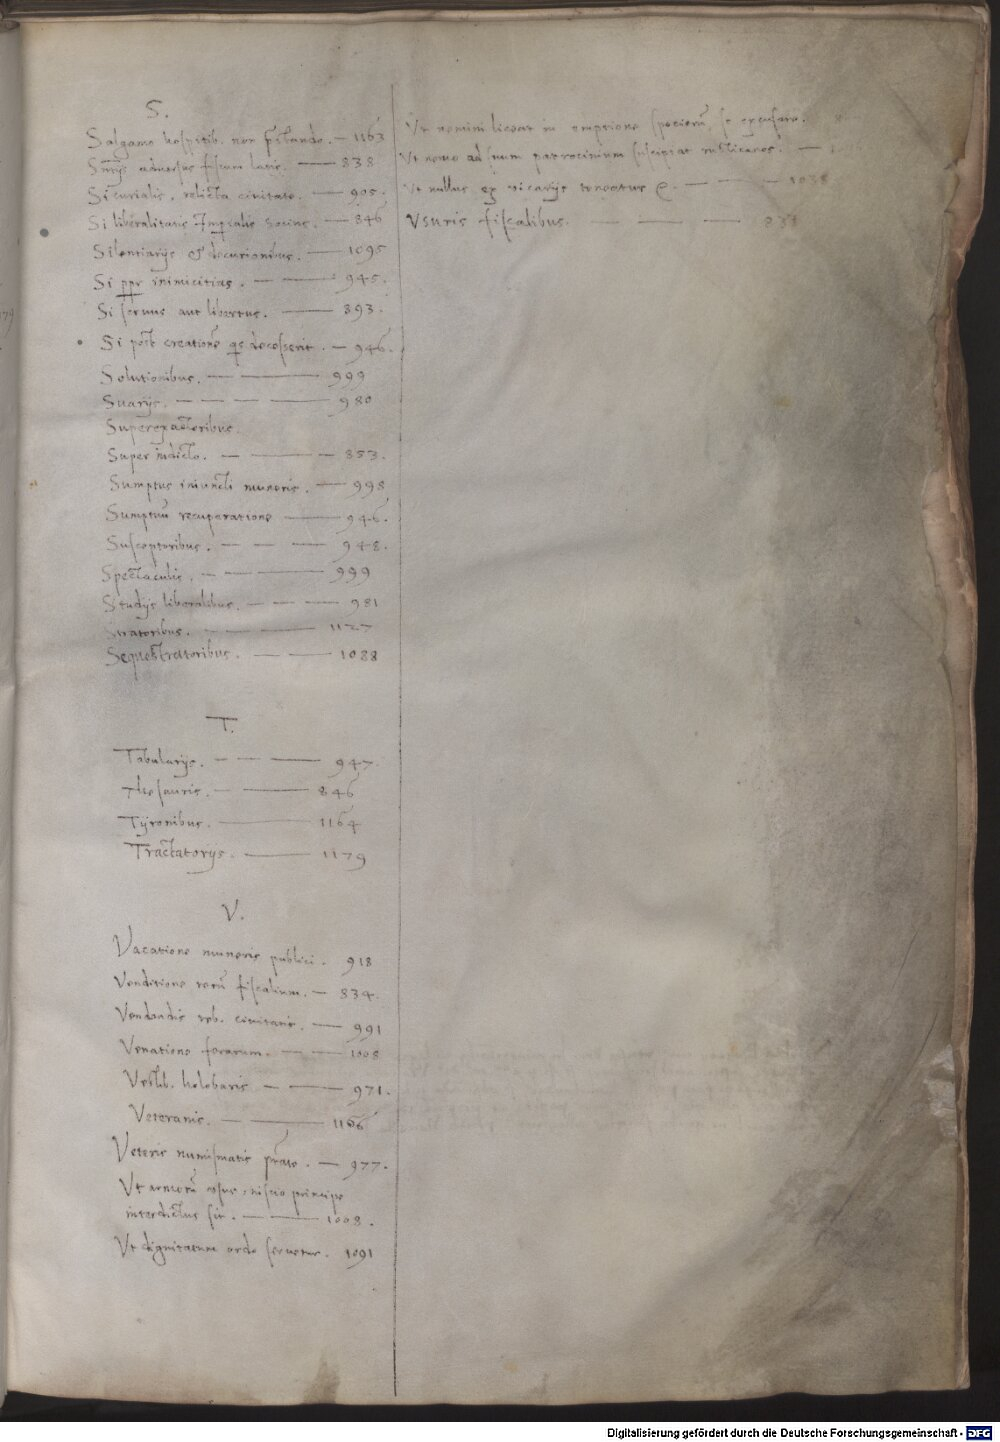 S.
Salgamo hospitib. non p̃stando. — 1163
Sñtijs aduersus fiscum latis. — 838
Si curialis, relicta ciuitate. — 905.
Si liberalitatis Imp̃ialis socius. — 846
Silentiarijs et decurionibus. — 1095
Si ppr inimicitias. — 945.
Si seruus aut libertus. — 893.
Si post creationẽ qs decesserit. — 946.
Solutionibus. — 999
Suarijs. — 980
Superexactoribus.
Super indicto. — 853.
Sumptus iniuncti muneris. — 998
Sumptuũ recuperatione — 946.
Susceptoribus. — 948.
Spectaculis. — 999
Studijs liberalibus. — 981
Stratoribus. — 1127
Sequestratoribus. — 1088
T.
Tabularijs. — 947
Thesauris. — 846
Tyronibus. — 1164
Tractatorijs. — 1179
V.
Vacatione muneris publici. 918
Venditione rerũ fiscalium. — 834.
Vendendis reb. ciuitatis. — 991
Venatione ferarum. — 1008
Vestib. holoberis — 971.
Veteranis. — 1166
Veteris numismatis p̃tate. — 977.
Vt armorũ vsus, inscio principe
interdictus sit. — 1008.
Vt dignitatum ordo seruetur. 1091
Vt nemini liceat in emptione specierũ, se excusare.
Vt nemo ad suum patrocinium suscipiat rusticanos. —
Vt nullus ex vicarijs teneatus — 1038
Vsuris fiscalibus. — 833